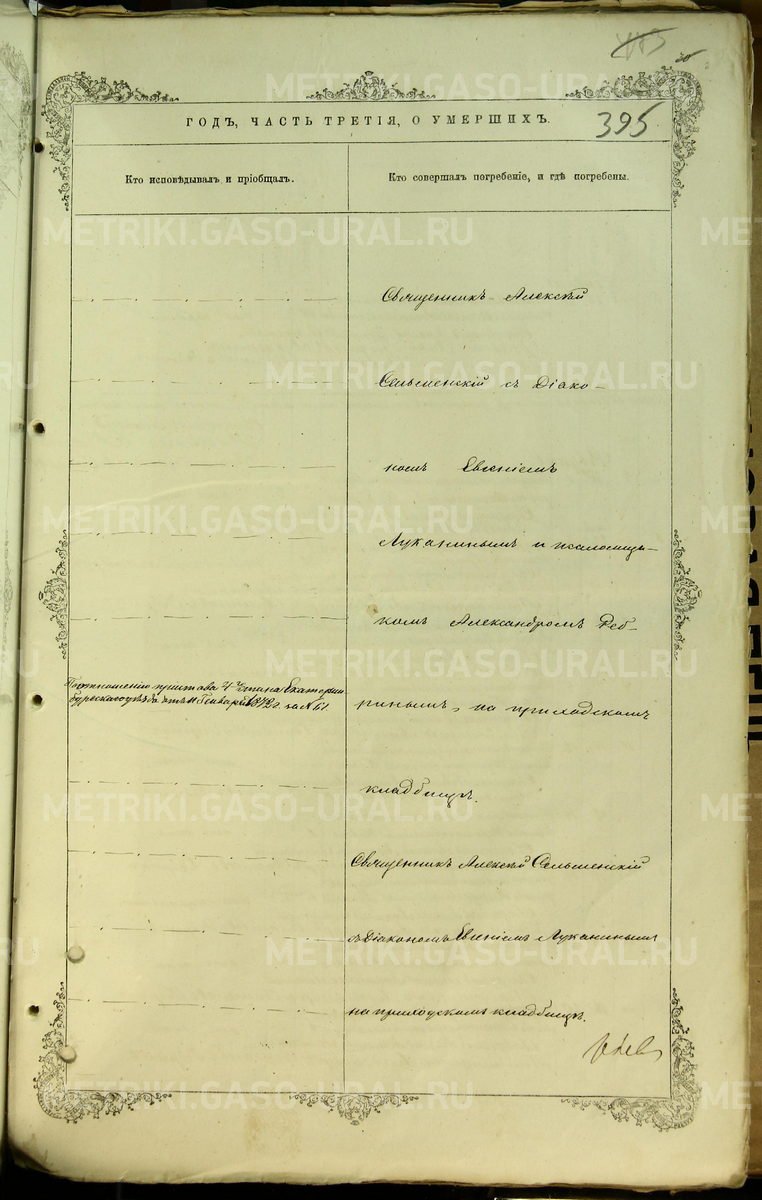 395
ГОДЪ, ЧАСТЬ ТРЕТІЯ, О УМЕРШИХЪ.
Кто исповѣдывалъ и пріобщалъ.
Кто совершалъ погребеніе, и гдѣ погребены.
Священникъ Алексѣй
Сельменскій съ Діако-
номъ Евгеніемъ
Луканинымъ и псаломщи-
комъ Александромъ Реб-
По отношенію пристава 4 Стана Екатерин
бургскаго уѣзда отъ 11 Генваря 1872 г. за № 61.
ринымъ, на приходскомъ
кладбищѣ.
Священникъ Алексѣй Сельменскій
съ Діакономъ Евгеніемъ Луканинымъ
на приходскомъ кладбищѣ.
METRIKI.GASO-URAL.RU